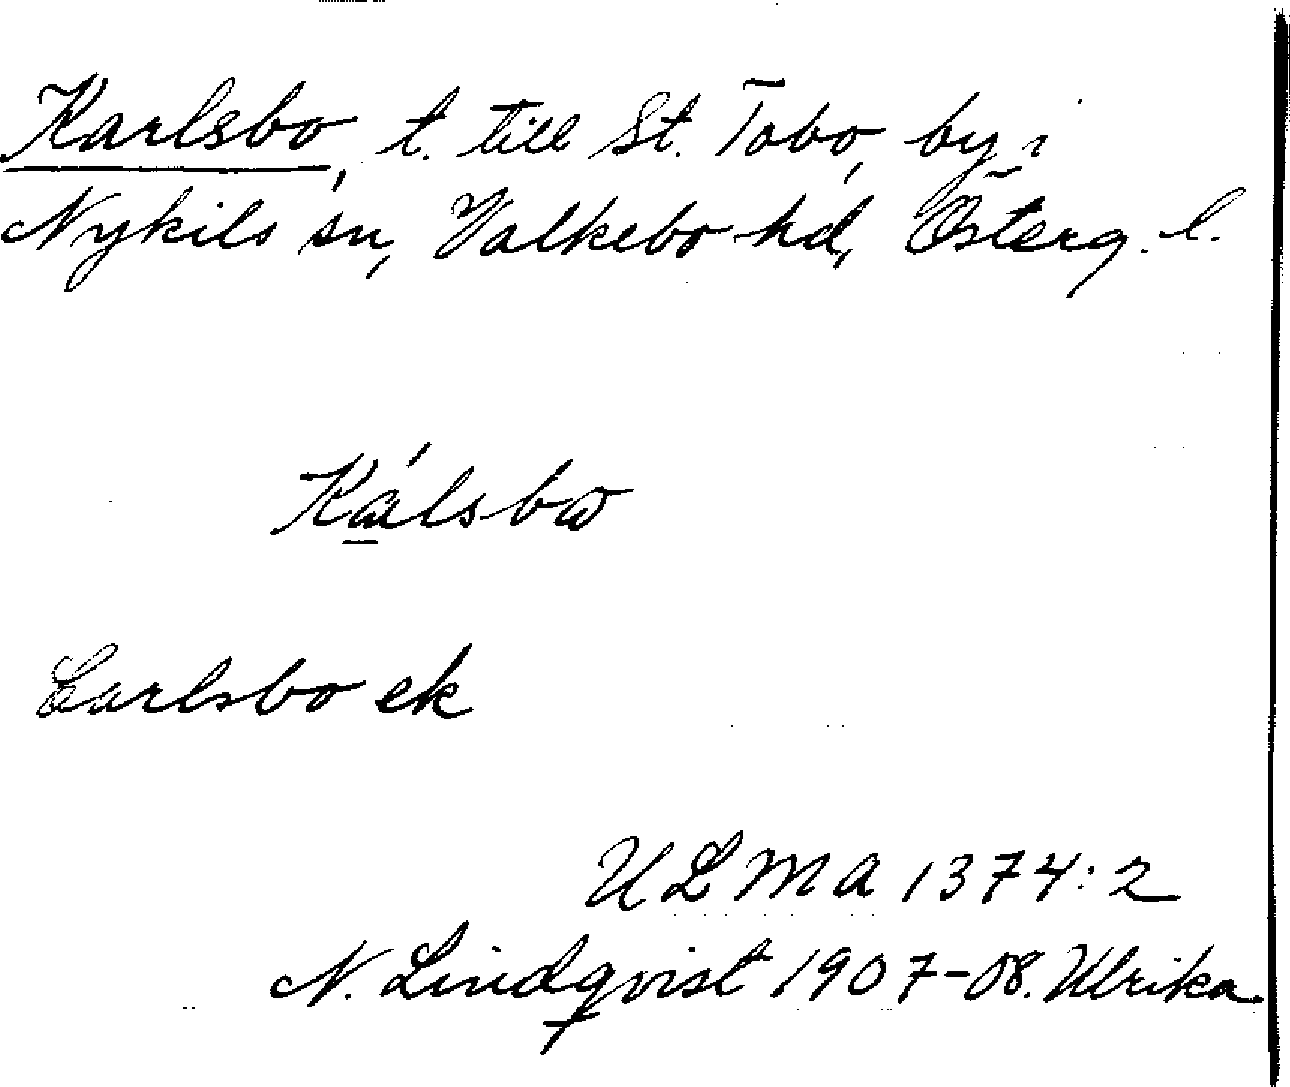 Karlsbo, t. till St. Tobo, by i
Nykils sn, Valkebo hd, Österg. l.
Ká̱lsbω
Carlsbo ek
ULMA 1374:2
N. Lindqvist 1907-08. Ulrika.